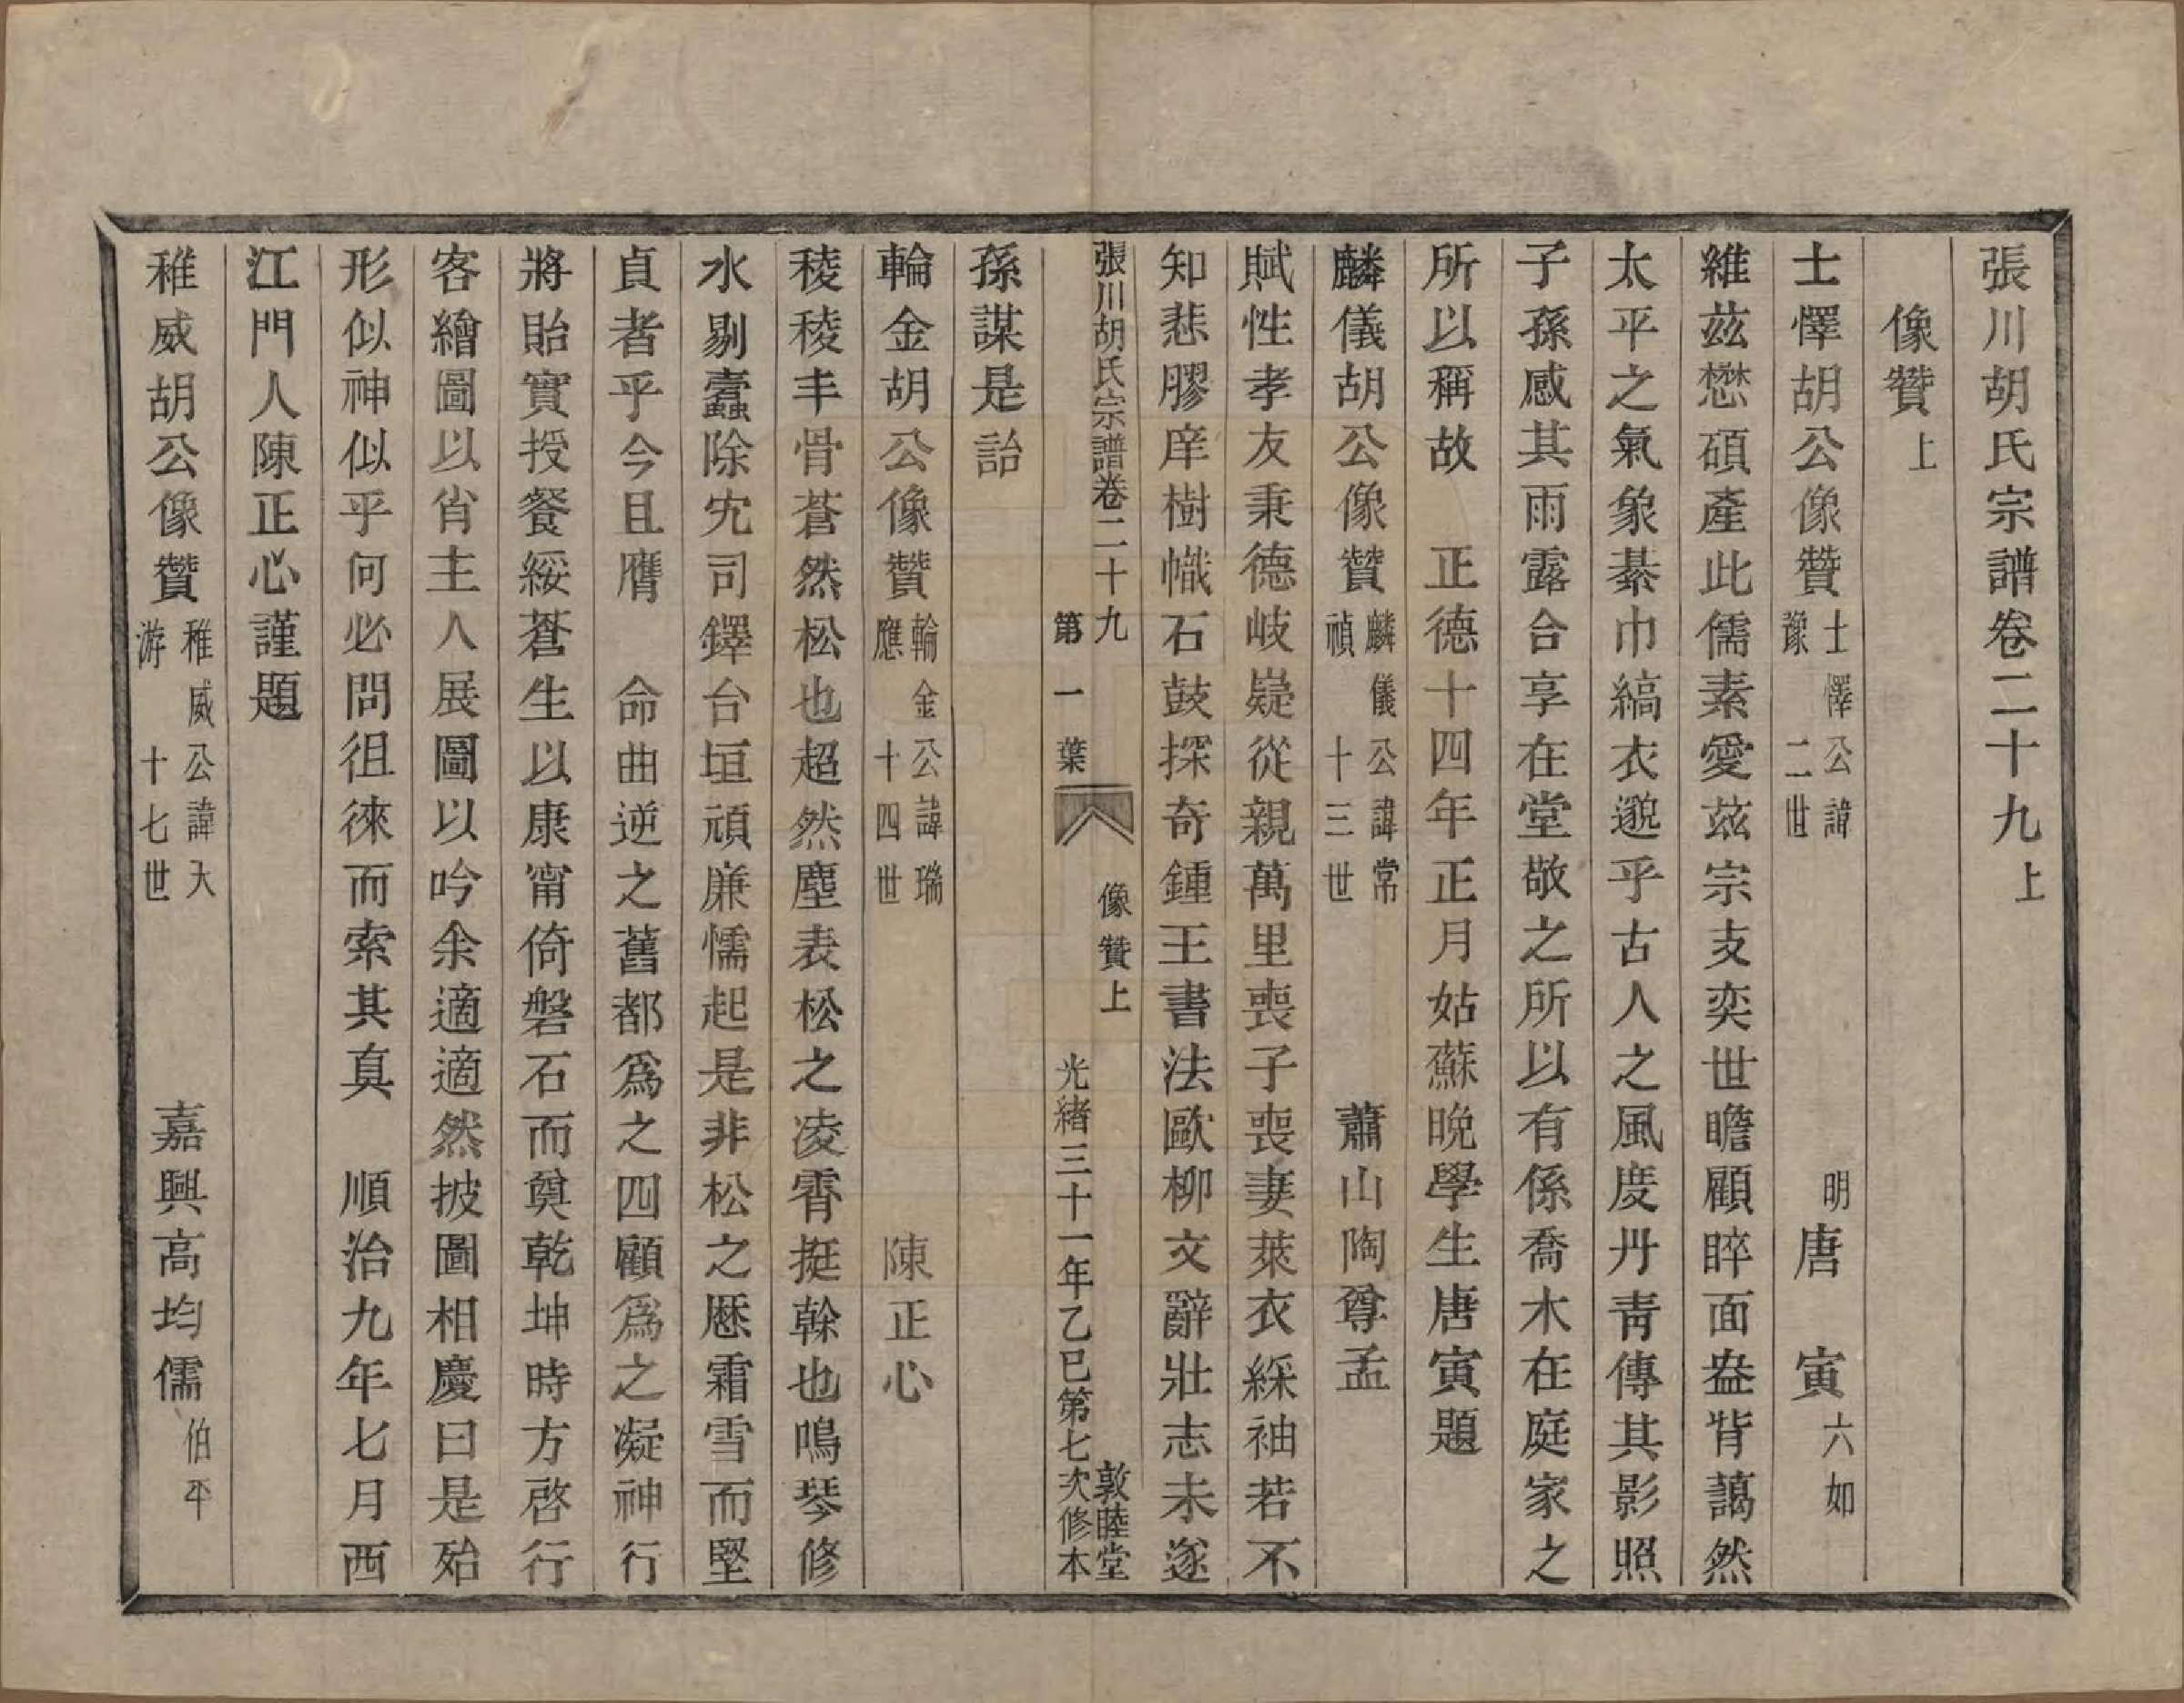 張川胡氏宗譜卷二十九上
像贊上
士懌胡公像贊 士懌公諱豫二世 明唐寅六如
維茲懋碩產此儒素愛茲宗支奕世瞻顧睟面盎背藹然
太平之氣象綦巾縞衣邈乎古人之風度丹青傳其影照
子孫感其雨露合享在堂敬之所以有係喬木在庭家之
所以稱故 正德十四年正月姑蘇晚學生唐寅題
麟儀胡公像贊 麟儀公諱常禎十三世 蕭山陶尊孟
賦性孝友秉德岐嶷從親萬里喪子喪妻萊衣綵袖若不
知悲膠庠樹幟石鼓探奇鍾王書法歐柳文辭壯志未遂
張川胡氏宗譜卷二十九 第一葉 像贊上 光緒三十一年乙巳第七次修本 敦睦堂
孫謀是詒
輪金胡公像贊 輪金公諱瑞應十四世 陳正心
稜稜丰骨蒼然松也超然塵表松之凌霄挺榦也鳴琴修
水剔蠹除宄司鐸台垣頑廉懦起是非松之歷霜雪而堅
貞者乎今且膺 命曲逆之舊都為之四顧為之凝神行
將貽實授餐綏蒼生以康甯倚磐石而奠乾坤時方啓行
客繪圖以省主人展圖以吟余適適然披圖相慶曰是殆
形似神似乎何必問徂徠而索其真 順治九年七月西
江門人陳正心謹題
稚威胡公像贊 稚威公諱天游十七世 嘉興高均儒伯平